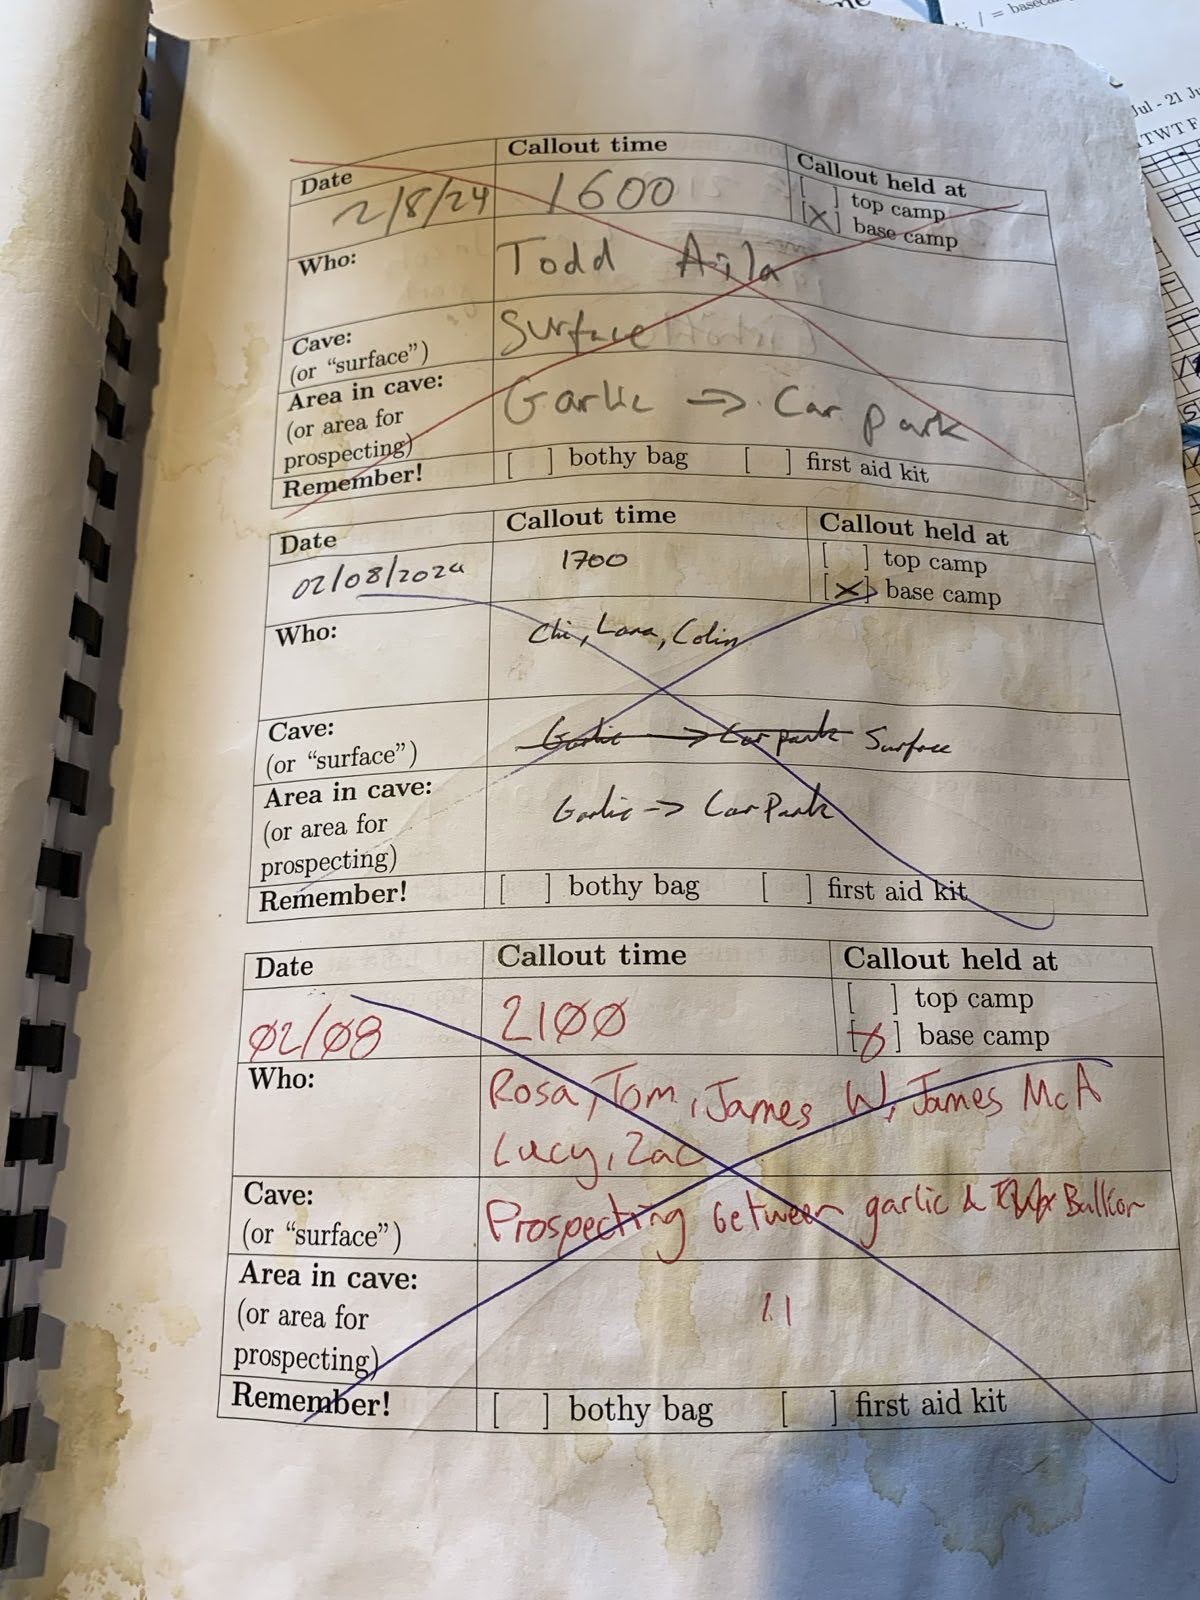 Jul - 21 Ju
TWTF
Date Callout time Callout held at
2/8/24 1600 [ ] top camp
[X] base camp
Who: Todd Aila
Cave: Surface
(or "surface")
Area in cave: Garlic → Car park
(or area for
prospecting)
Remember! [ ] bothy bag [ ] first aid kit
Date Callout time Callout held at
02/08/2024 1700 [ ] top camp
[X] base camp
Who: Chi, Lara, Colin
Cave: Garlic → Car park Surface
(or "surface")
Area in cave: Garlic → Car Park
(or area for
prospecting)
Remember! [ ] bothy bag [ ] first aid kit
Date Callout time Callout held at
02/08 2100 [ ] top camp
[X] base camp
Who: Rosa, Tom, James W, James McA
Lucy, Zac
Cave: Prospecting between garlic & Balkon
(or "surface")
Area in cave: 11
(or area for
prospecting)
Remember! [ ] bothy bag [ ] first aid kit